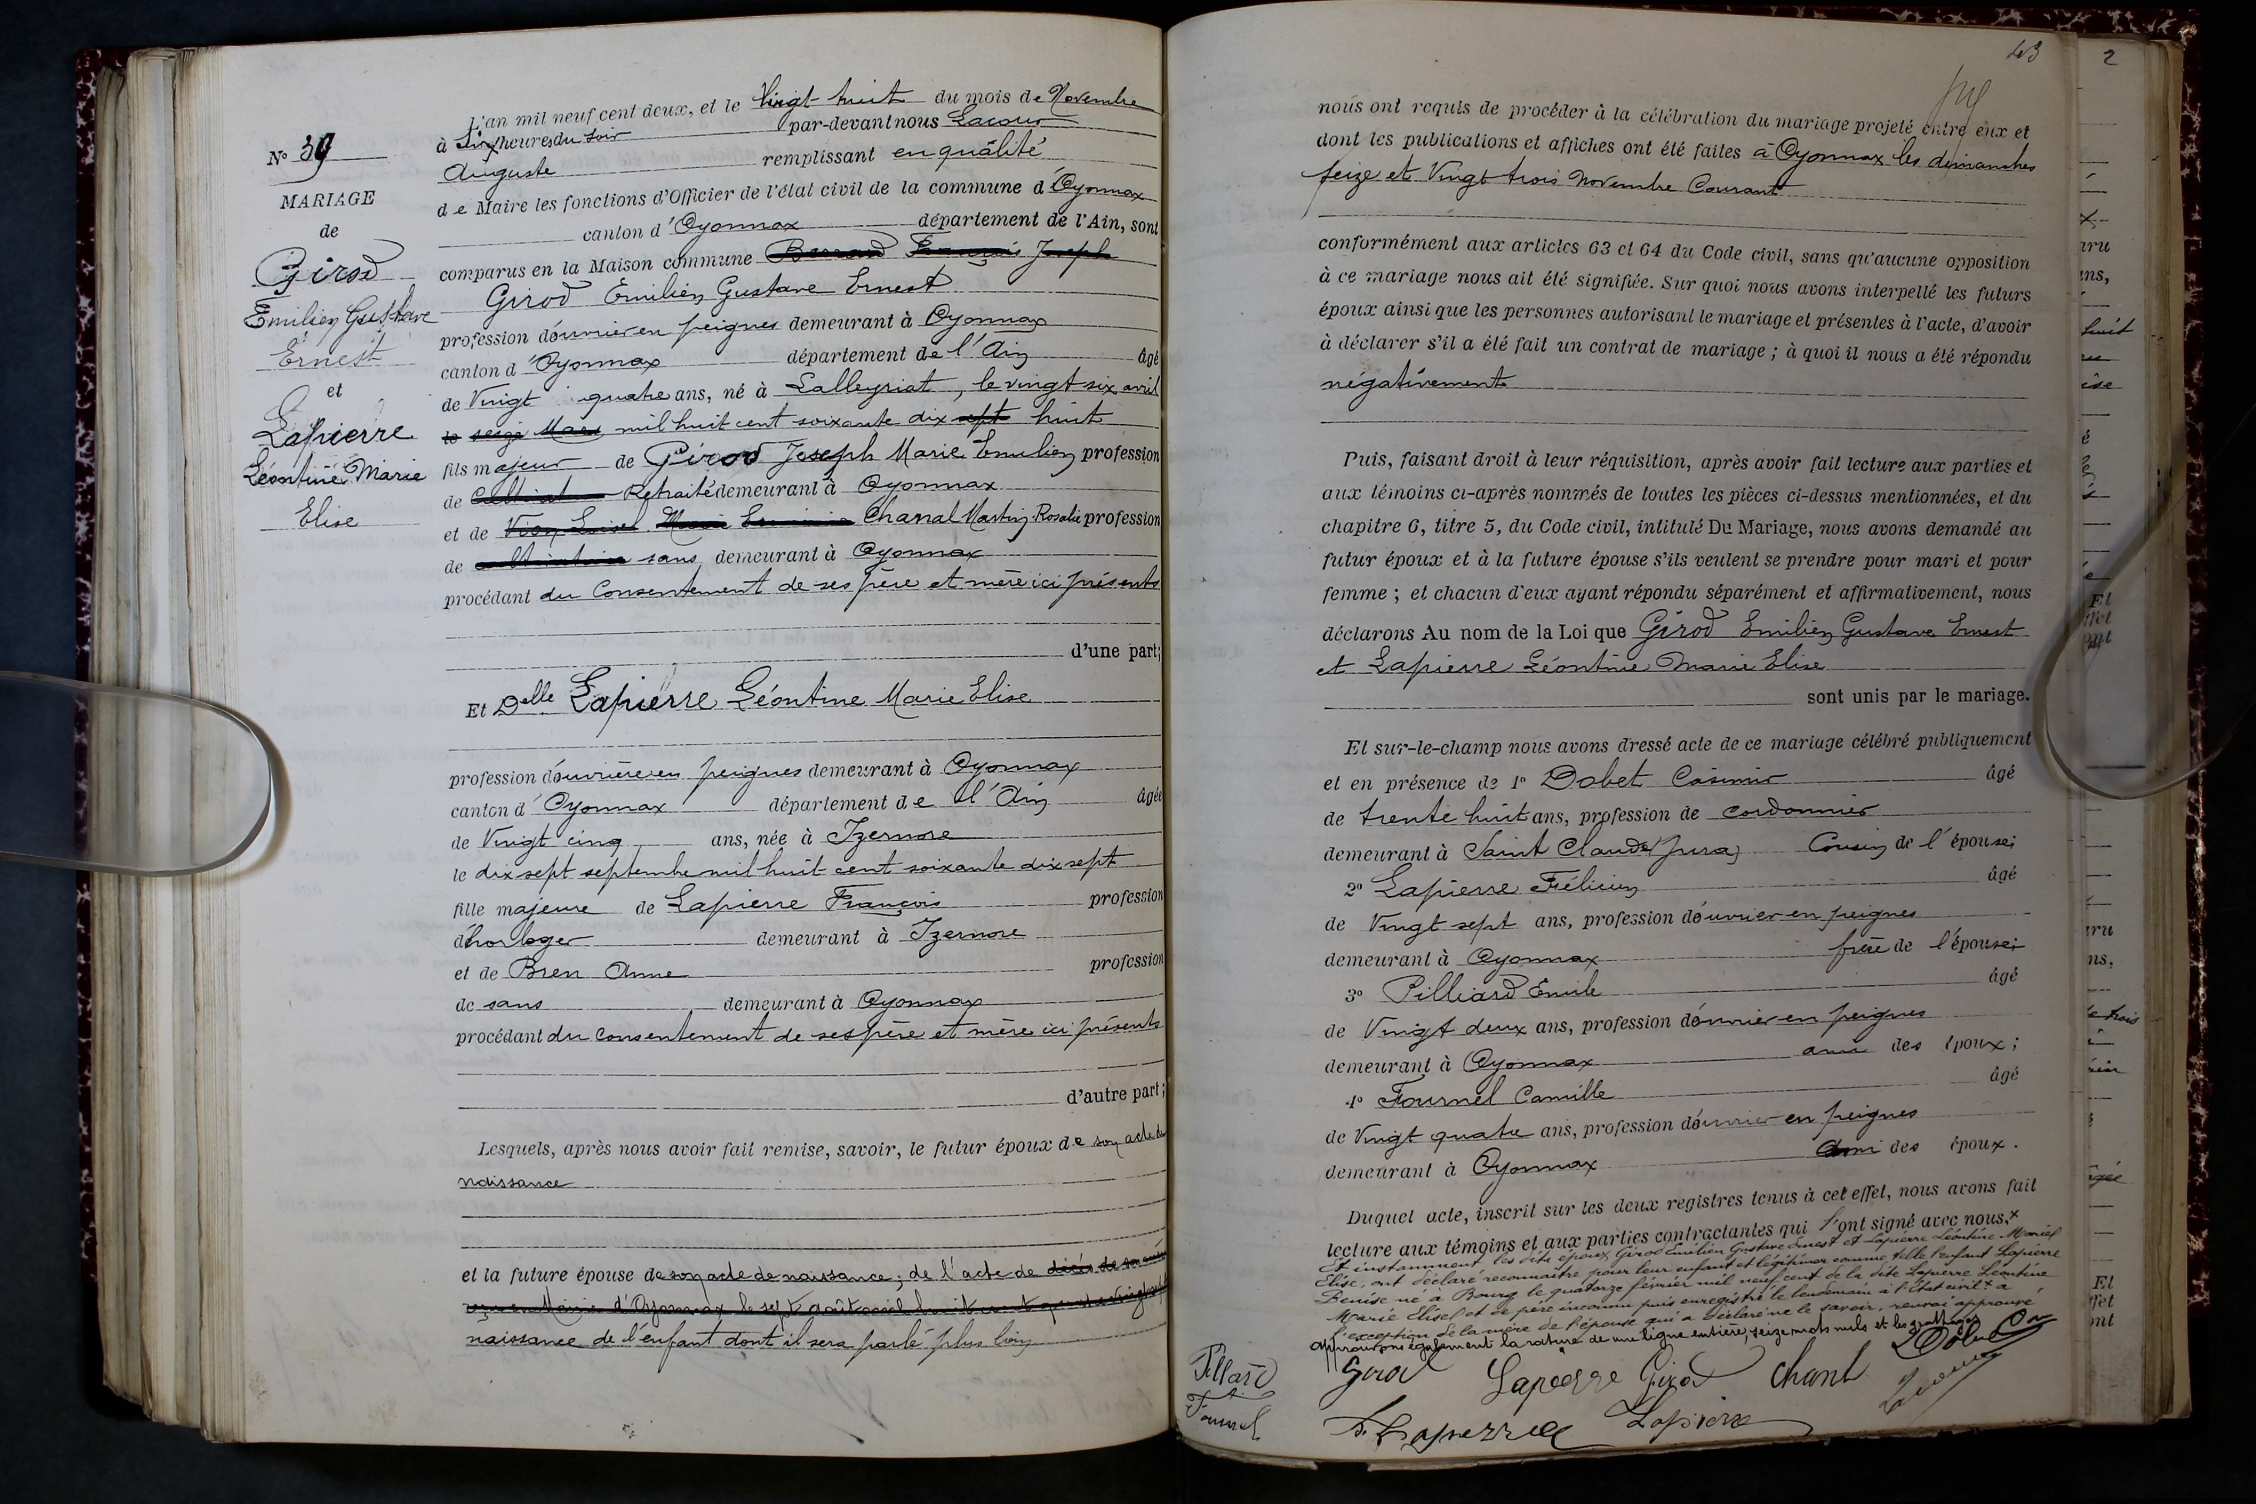 N° 39
MARIAGE
de
Girod
Emilien Gustave
Ernest
et
Lapierre
Léontine Marie
Elise
L'an mil neuf cent deux, et le Vingt-huit du mois de Novembre
à Six heures du soir par-devant nous Lacour
Auguste remplissant en qualité
de Maire les fonctions d'Officier de l'état civil de la commune d'Oyonnax
canton d'Oyonnax département de l'Ain, sont
comparus en la Maison commune Joseph
Girod Emilien Gustave Ernest
profession d'ouvrier en peignes demeurant à Oyonnax
canton d'Oyonnax département de l'Ain âgé
de Vingt quatre ans, né à Lalleyriat, le vingt six avril
le seize Mars mil huit cent soixante dix sept huit
fils majeur de Girod Joseph Marie Emilien profession
de Retraité demeurant à Oyonnax
et de Chanal Martin Rosalie profession
de sans demeurant à Oyonnax
procédant du Consentement de ses père et mère ici présents
d'une part;
Et Delle Lapierre Léontine Marie Elise
profession d'ouvrière en peignes demeurant à Oyonnax
canton d'Oyonnax département de l'Ain âgée
de Vingt cinq ans, née à Izernore
le dix sept septembre mil huit cent soixante dix sept
fille majeure de Lapierre François profession
d'horloger demeurant à Izernore
et de Bren Anne profession
de sans demeurant à Oyonnax
procédant du consentement de ses père et mère ici présents
d'autre part;
Lesquels, après nous avoir fait remise, savoir, le futur époux de son acte de
naissance
et la future épouse de son acte de naissance; de l'acte de décès de
en Mairie d'Oyonnax le sept août mil huit cent
naissance de l'enfant dont il sera parlé plus loin
43
nous ont requis de procéder à la célébration du mariage projeté entre eux et
dont les publications et affiches ont été faites à Oyonnax les dimanches
seize et Vingt trois Novembre Courant
conformément aux articles 63 et 64 du Code civil, sans qu'aucune opposition
à ce mariage nous ait été signifiée. Sur quoi nous avons interpellé les futurs
époux ainsi que les personnes autorisant le mariage et présentes à l'acte, d'avoir
à déclarer s'il a été fait un contrat de mariage; à quoi il nous a été répondu
négativement
Puis, faisant droit à leur réquisition, après avoir fait lecture aux parties et
aux témoins ci-après nommés de toutes les pièces ci-dessus mentionnées, et du
chapitre 6, titre 5, du Code civil, intitulé Du Mariage, nous avons demandé au
futur époux et à la future épouse s'ils veulent se prendre pour mari et pour
femme; et chacun d'eux ayant répondu séparément et affirmativement, nous
déclarons Au nom de la Loi que Girod Emilien Gustave Ernest
et Lapierre Léontine Marie Elise
sont unis par le mariage.
Et sur-le-champ nous avons dressé acte de ce mariage célébré publiquement
et en présence de 1° Dobet Casimir âgé
de trente huit ans, profession de cordonnier
demeurant à Saint Claude (Jura) Cousin de l'épouse;
2° Lapierre Félicien âgé
de Vingt sept ans, profession d'ouvrier en peignes
demeurant à Oyonnax frère de l'épouse;
3° Pilliard Emile âgé
de Vingt deux ans, profession d'ouvrier en peignes
demeurant à Oyonnax ami des époux;
4° Fournel Camille âgé
de Vingt quatre ans, profession d'ouvrier en peignes
demeurant à Oyonnax Ami des époux.
Duquel acte, inscrit sur les deux registres tenus à cet effet, nous avons fait
lecture aux témoins et aux parties contractantes qui l'ont signé avec nous, x
Et instamment, les dits époux Girod Emilien Gustave Ernest et Lapierre Léontine Marie
Elise, ont déclaré reconnaître pour leur enfant et légitimer comme telle l'enfant Lapierre
Denise né à Bourg le quatorze février mil neuf cent de la dite Lapierre Léontine
Marie Elise et de père inconnu puis enregistré le lendemain à l'état civil x à
l'exception de la mère de l'épouse qui a déclaré ne le savoir, renvoi approuvé
approuvons également la rature de une ligne entière, seize mots nuls et les grattages
Girod Lapierre Girod Chanl Dobet Cas
Pilliard
Fournel
F. Lapierre Lapierre Lacour